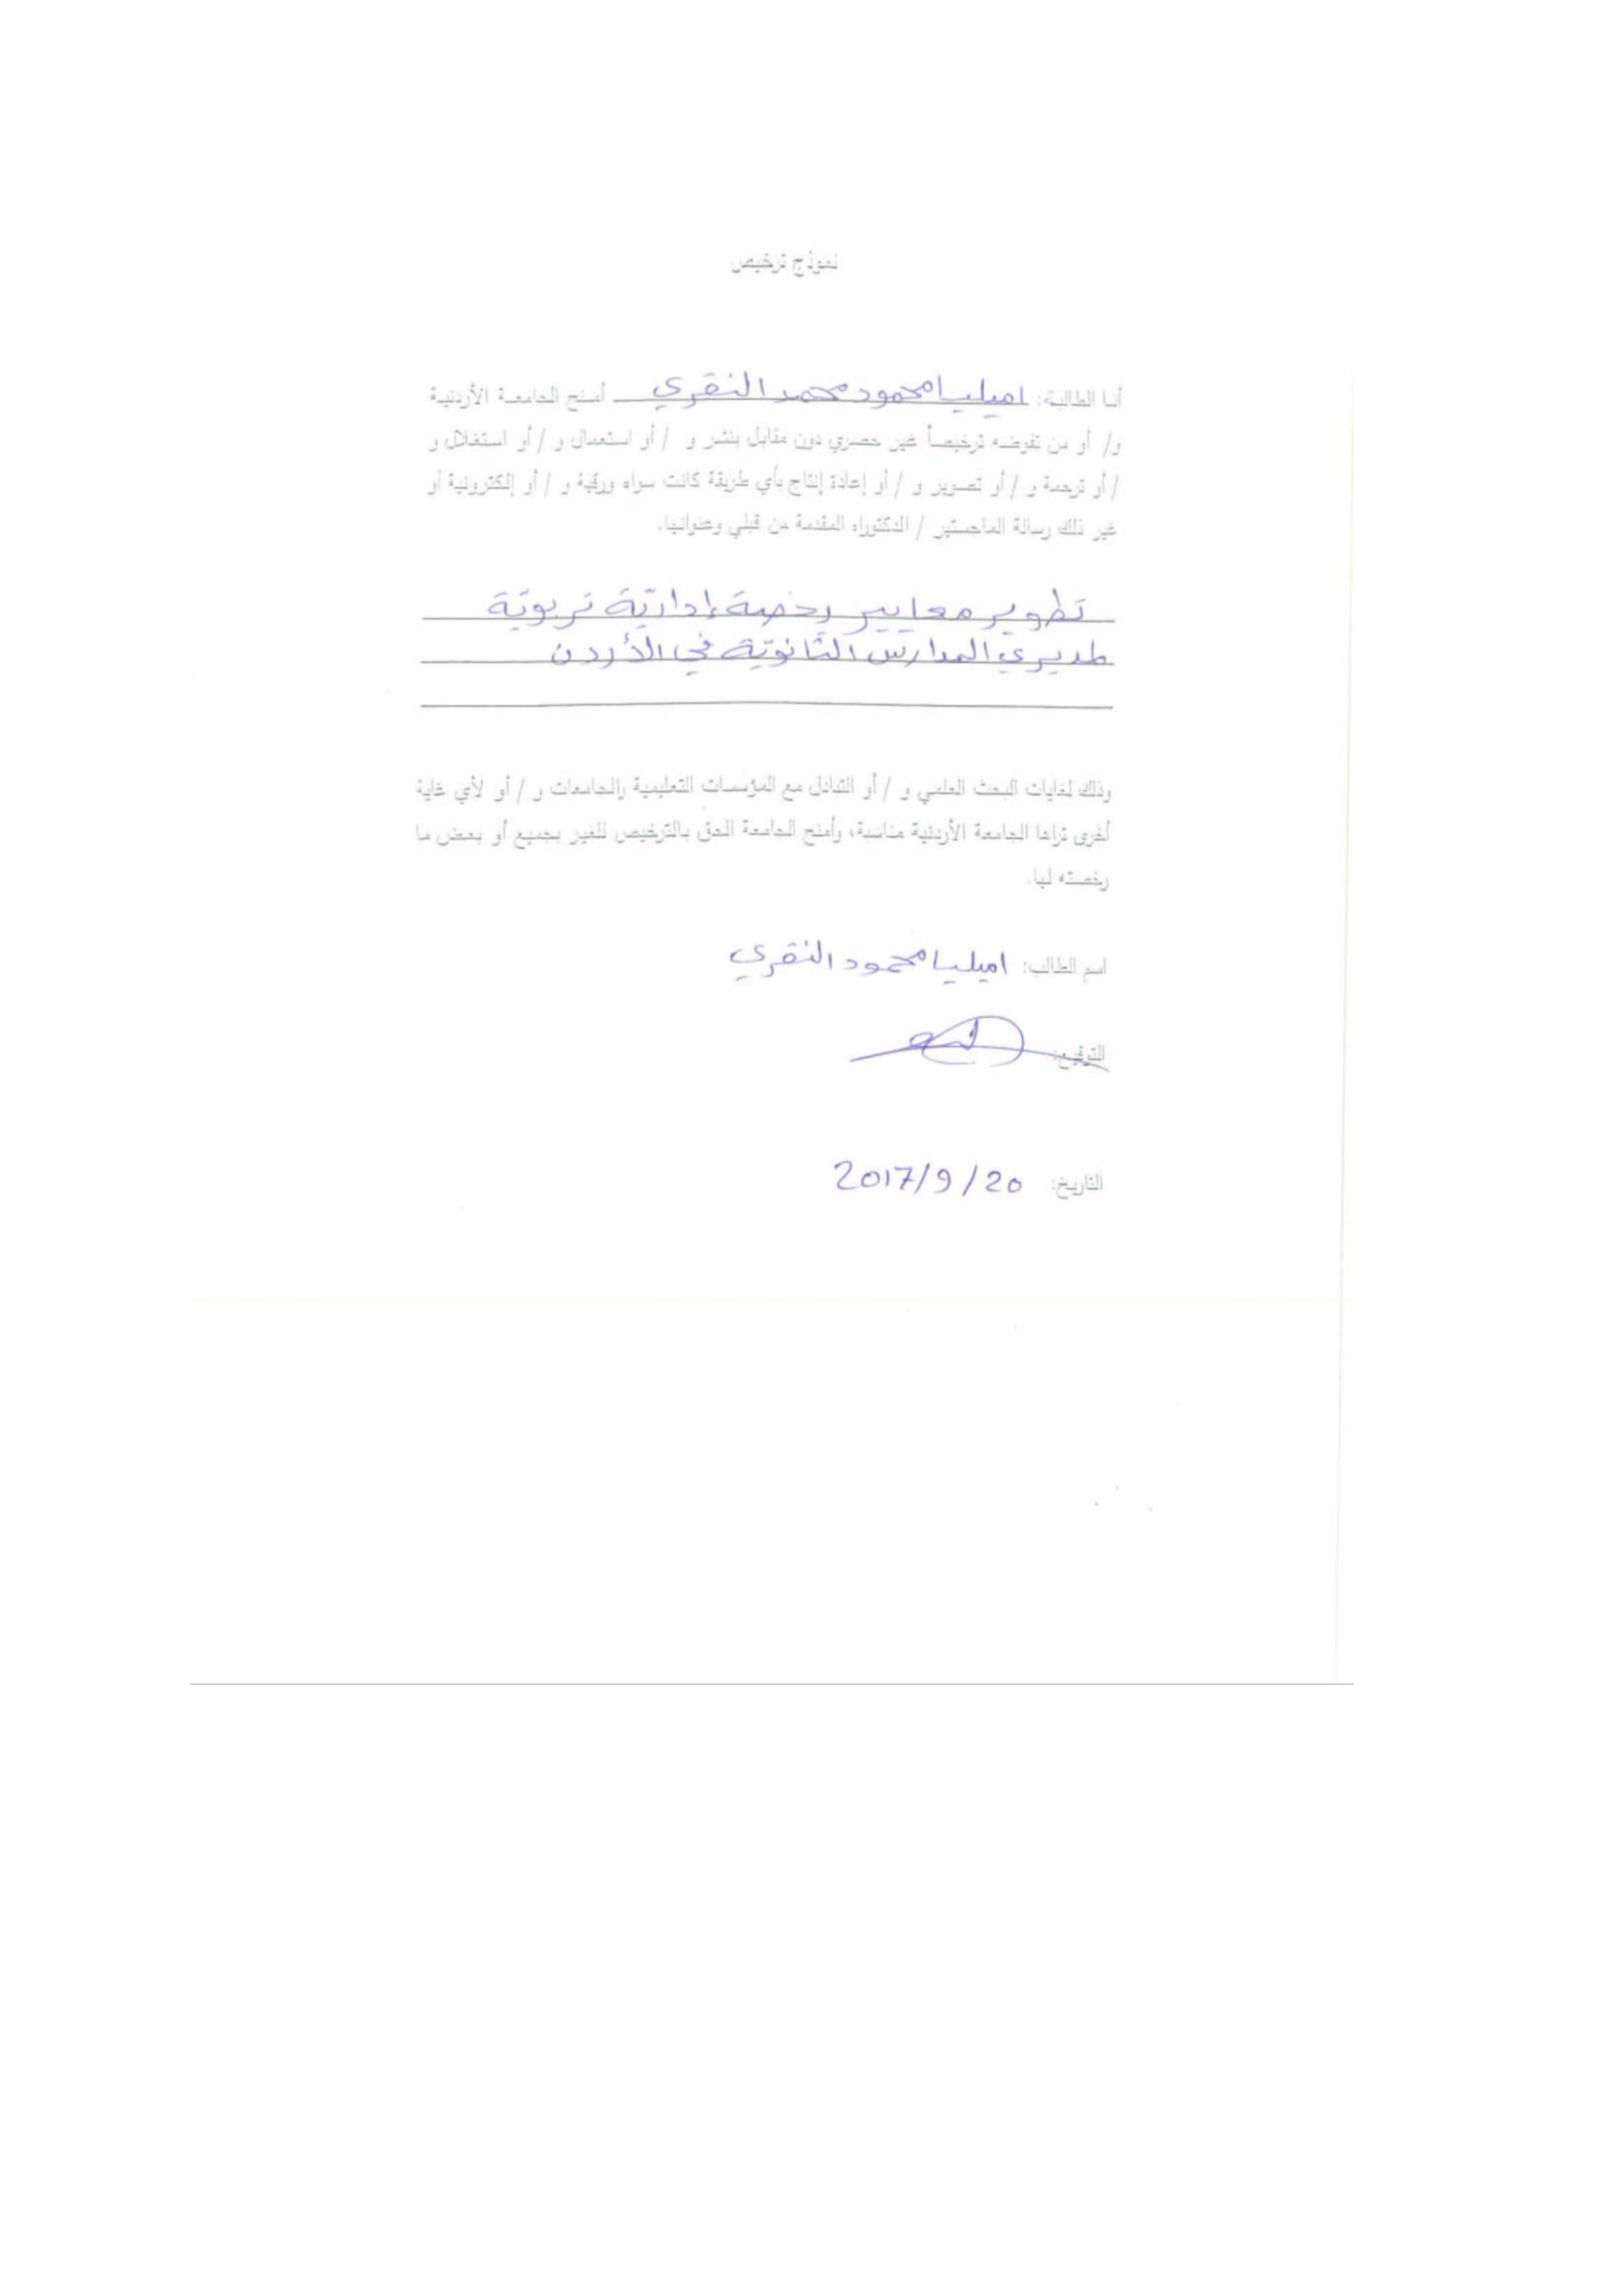 نموذج ترخيص
أنا الطالبة: اميليا محمود محمد النقري أمنح الجامعة الأردنية
و/ أو من تفوضه ترخيصاً غير حصري دون مقابل بنشر و / أو استعمال و / أو استغلال و
/ أو ترجمة و / أو تصوير و / أو إعادة إنتاج بأي طريقة كانت سواء ورقية و / أو إلكترونية أو
غير ذلك رسالة الماجستير / الدكتوراه المقدمة من قبلي وعنوانها.
تطوير معايير رخصة إداريّة تربويّة
لمديري المدارس الثانويّة في الأردن
وذلك لغايات البحث العلمي و / أو التبادل مع المؤسسات التعليمية والجامعات و / أو لأي غاية
أخرى تراها الجامعة الأردنية مناسبة، وأمنح الجامعة الحق بالترخيص للغير بجميع أو بعض ما
رخصته لها.
اسم الطالب: اميليا محمود النقري
التوقيع:
التاريخ: 2017/9/20